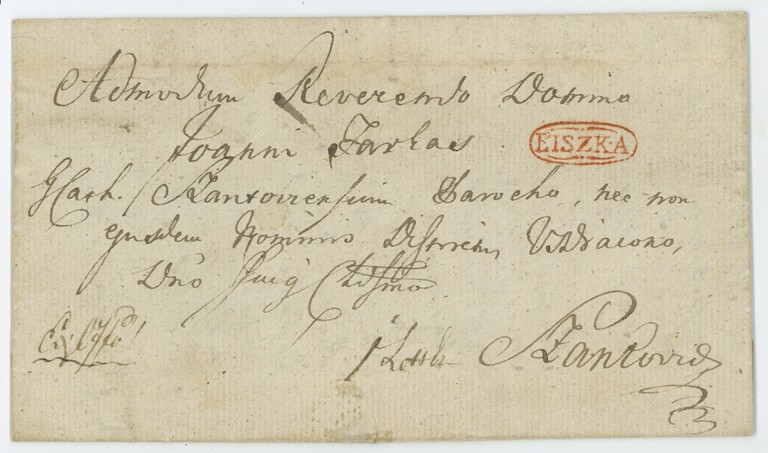 Admodum Reverendo Domino
Joanni Farkas
EISZKA
GCath. Szantoviensium Parocho, nec non
ejusdem Nominis Districtus VADiacono,
Dno
Ex Offo
Szantovie